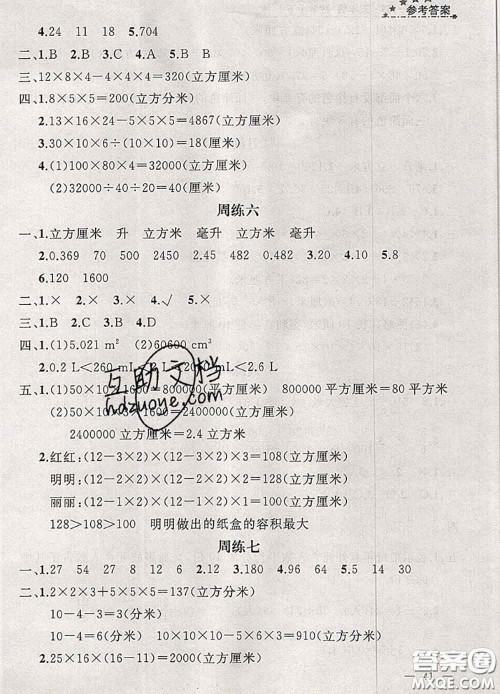 参考答案
4.24 11 18 5.704
二、1.B 2.B 3.C 4.A 5.B B
三、12×8×4-4×4×4=320(立方厘米)
四、1.8×5×5=200(立方分米)
2.13×16×24-5×5×5=4867(立方厘米)
3.30×10×6÷(10×10)=18(厘米)
4.(1)100×80×4=32000(立方厘米)
(2)32000÷40÷20=40(厘米)
周练六
一、1.立方厘米 升 立方米 毫升 立方米 毫升
2.0.369 70 500 2450 2.45 482 0.482 3.20 4.10 5.8
6.120 1600
二、1.× 2.× 3.× 4.√ 5.×
三、1.B 2.C 3.B 4.D
四、1.(1)5.021 m² (2)60600 cm³
2.0.2 L<260 mL<2 L<2060 mL<2.6 L
五、1.(1)50×10×1600=800000(平方厘米) 800000平方厘米=80平方米
(2)50×10×3×1600=2400000(立方厘米)
2400000立方厘米=2.4立方米
2.红红:(12-3×2)×(12-3×2)×3=108(立方厘米)
明明:(12-2×2)×(12-2×2)×2=128(立方厘米)
丽丽:(12-1×2)×(12-1×2)×1=100(立方厘米)
128>108>100 明明做出的纸盒的容积最大
周练七
一、1.27 54 27 8 12 6 2.12 3.180 4.96 64 5.5 14 30
二、1.2×2×3+5×5×5=137(立方分米)
10-4-3=3(分米)
10-4=6(分米) 10×10×10-5×6×3=910(立方分米)
2.25×16×(16-11)=2000(立方厘米)
互助文档
hdzuoye.com
答案圈
MXQE.COM